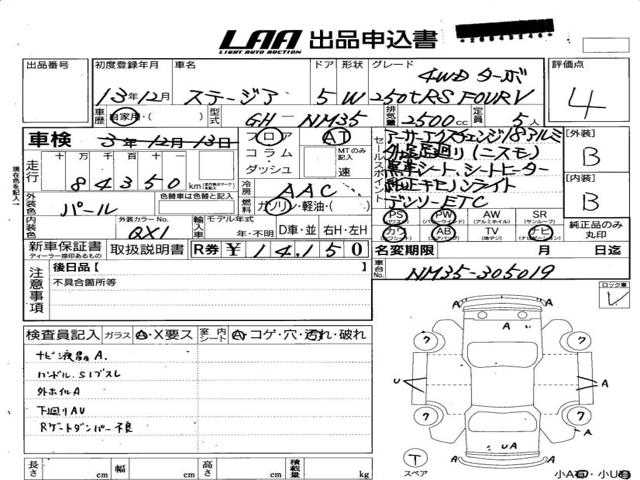 LAA 出品申込書
LIGHT AUTO AUCTION
出品番号 初度登録年月 車名 ドア 形状 グレード 評価点
13年12月 ステージア 5 W 4WDターボ 250tRS FOUR V 4
車歴 自家用・( ) 型式 GH-NM35 排気量 2500cc 定員 5人
車検 3年12月13日 フロア AT セールスポイント
走行 十 万 千 百 十 コラム MTのみ記入
84350km ダッシュ 速
外足廻り(ニスモ)
黒革シート、シートヒーター
純正キセノンライト
デンソーETC
[外装] B
[内装] B
現在色を記入
外装色 パール 色替車は色替と記入 冷房 AAC
燃料 ガソリン・軽油・( )
内装色 外装カラーNo. QX1 輸入車 モデル年式 年・不明 D車・並 右H・左H
PS PW AW SR
(パワーウインド) (アルミホイル) (サンルーフ)
カワ AB TV ナビ
純正品のみ丸印
新車保証書 取扱説明書 R券 ¥14,150 名変期限 月 日迄
ディーラー捺印あるもの
車台No. NM35-305019
注意事項 後日品[ ]
不具合箇所等
ロック車
レ
検査員記入 ガラス A・X要ス 室内シート A・コゲ・穴・汚れ・破れ
ナビ液晶A.
ハンドル.SIブスレ
外ホイルA
下廻りAU
Rゲートダンパー不良
A A
U A
U A
U A
A
T
スペア
長さ cm 幅 cm 高さ cm 積載量 kg
小A・小U